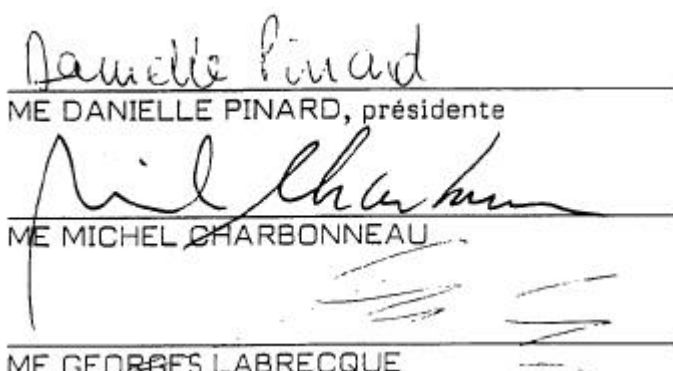 Danielle Pinard
ME DANIELLE PINARD, présidente
ME MICHEL CHARBONNEAU
ME GEORGES LABRECQUE